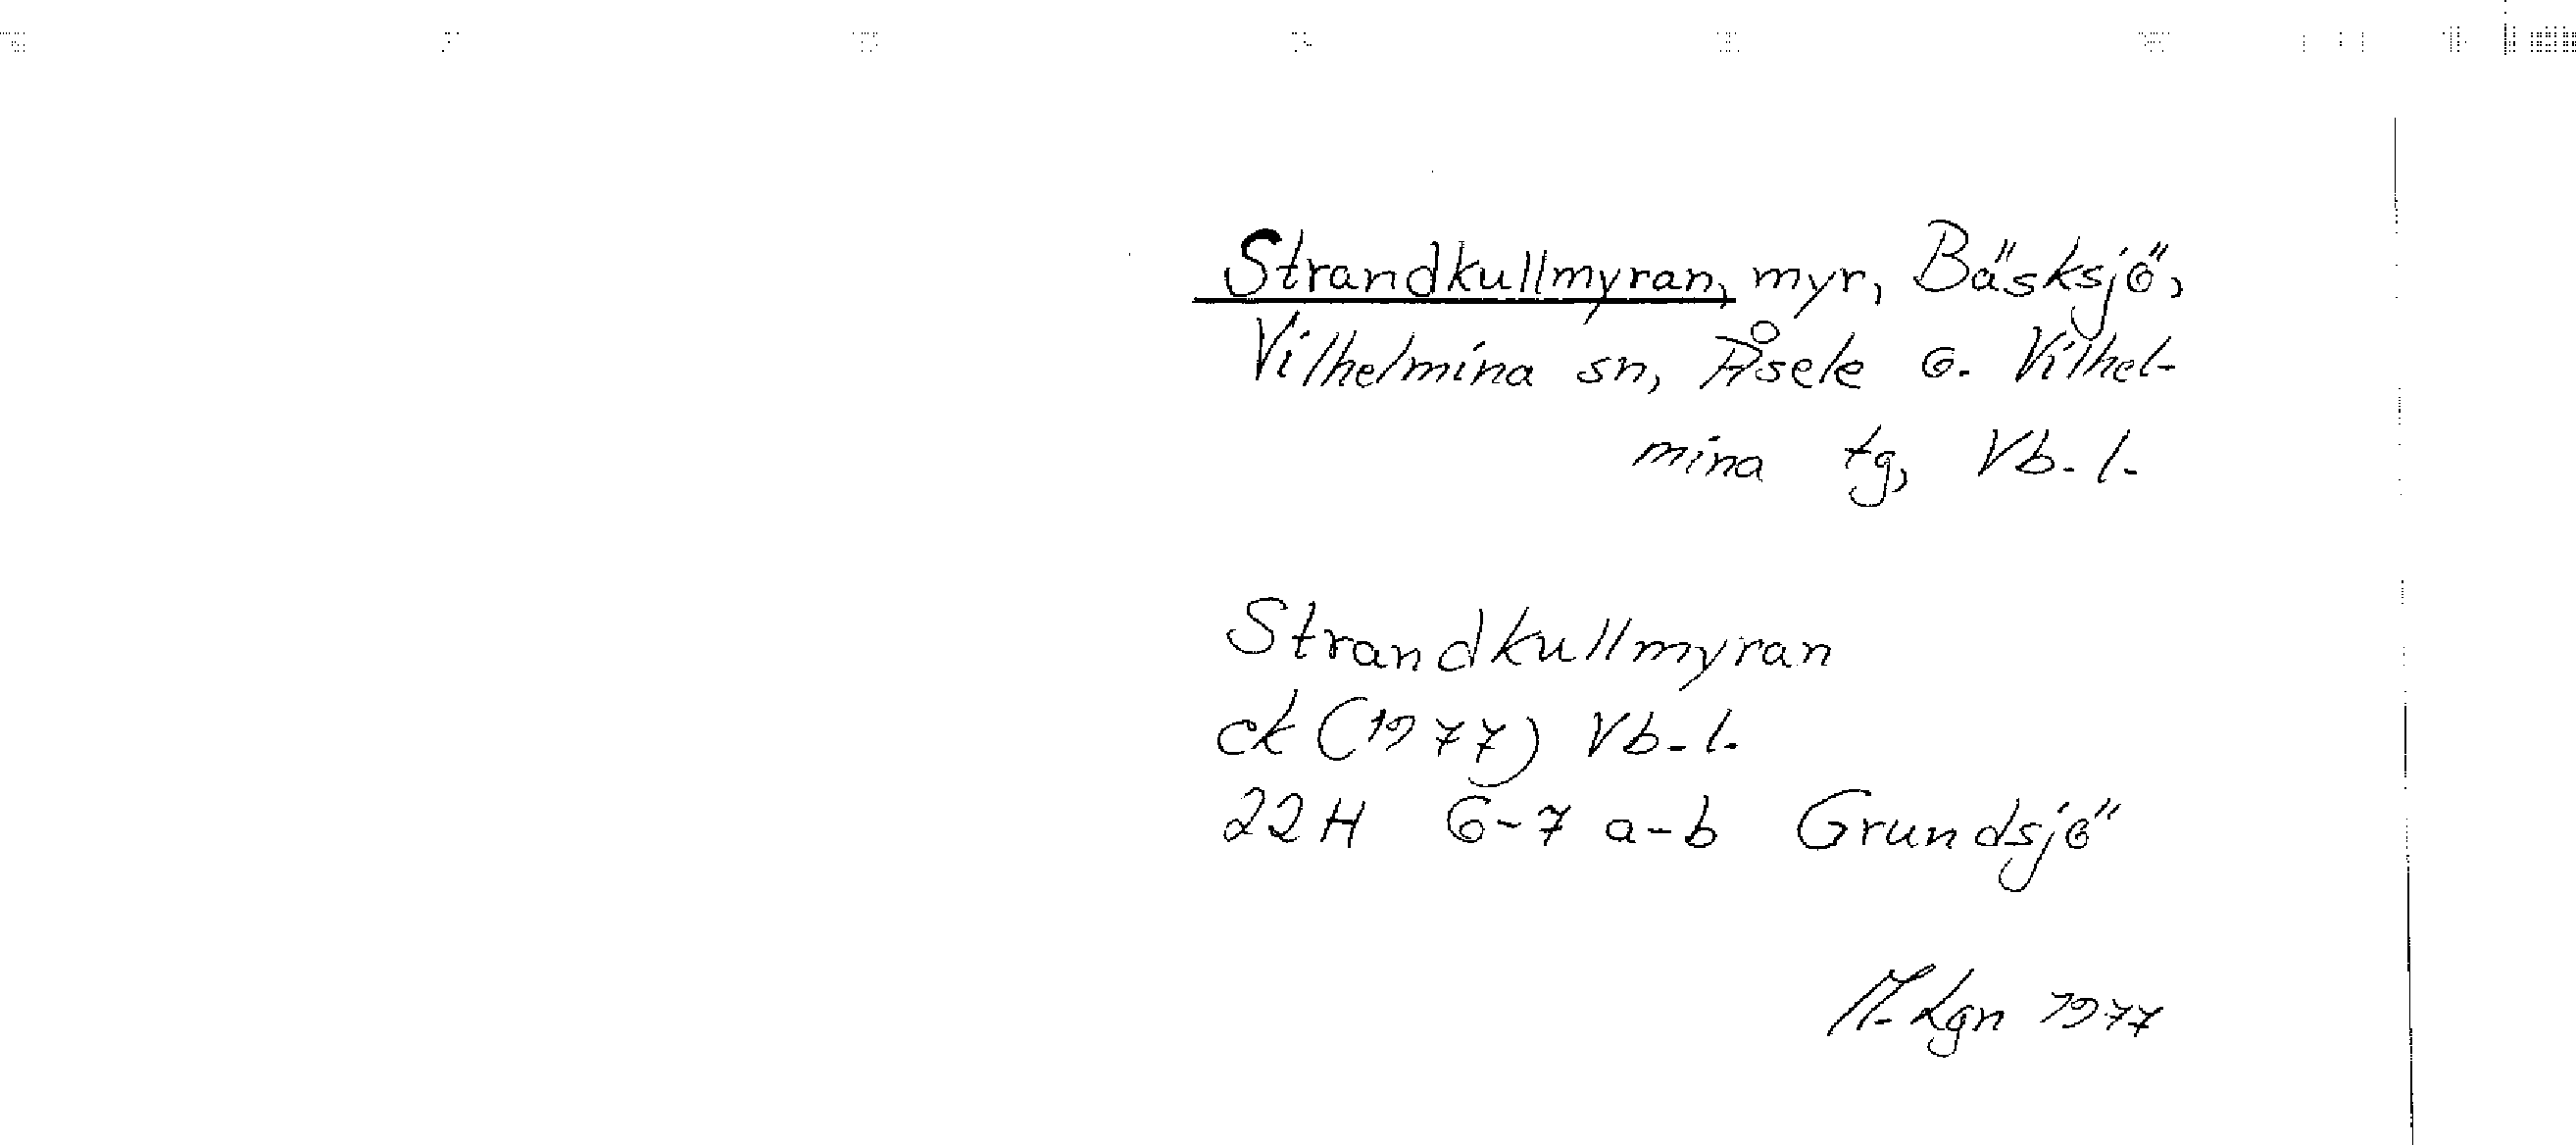 Strandkullmyran, myr, Bäsksjö,
Vilhelmina sn, Åsele o. Vilhel-
mina tg, Vb. l.
Strandkullmyran
ek (1977) Vb. l.
22H 6-7 a-b Grundsjö
M. Lgn 1977